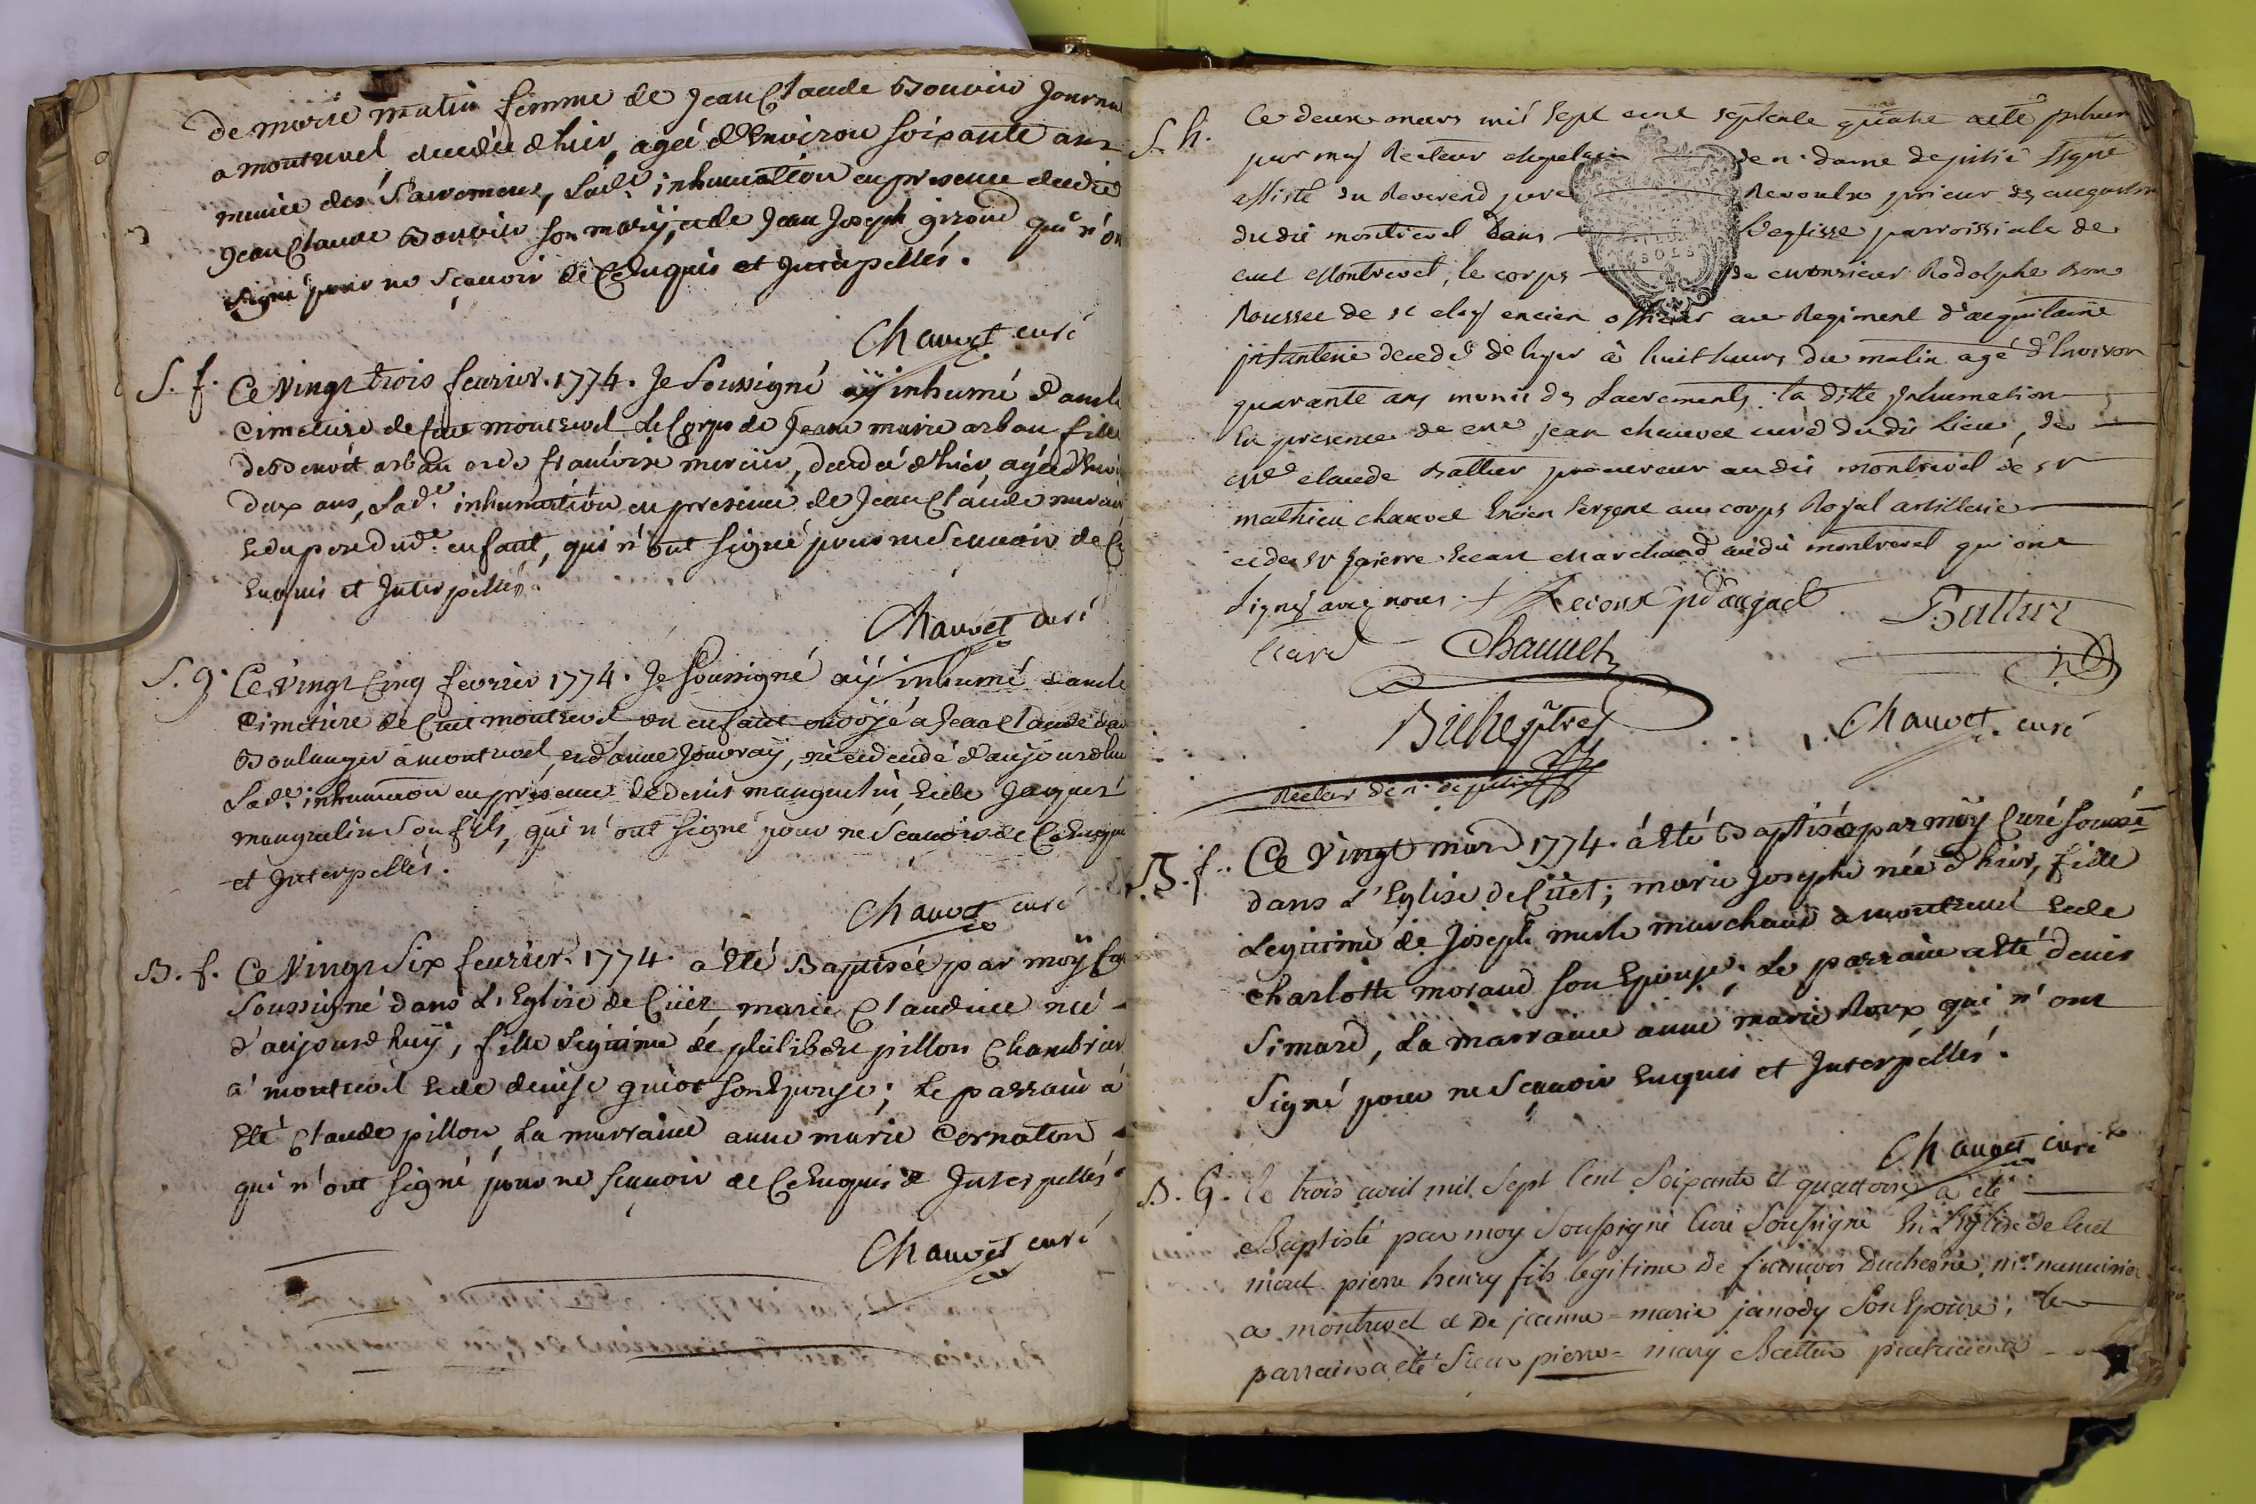 de marie matin femme de Jean Claude Bouvier Journa
a montrevel decedée d'hier, agée d'Environ soixante ans
munie des Sacremens, Lad.e inhumation en presence dudit
Jean Claude Bouvier son mary, et de Jean Joseph giroud qui n'on
signé pour ne sçavoir de Ce Enquis et Interpellés.
Chauvet curé
S. f. Ce vingt trois fevrier 1774. Je Soussigné aÿ inhumé dans le
Cimetiere de Cuet montrevel Le Corps de Jeane marie arban fille
de Benoit arban et de françoise mercier, decedée d'hier agée d'Envi
deux ans, Lad.e inhumation en presence de Jean Claude
et du pere dud.t enfant, qui n'ont signé pour ne Scavoir de Ce
Enquis et Interpellés.
Chauvet curé
S. g. Ce vingt Cinq fevrier 1774. Je Soussigné aÿ inhumé dans le
Cimetiere de Cuet montrevel un enfant ondoÿé a Jean Claude
Boulanger a montrevel, et d'anne Jouvraÿ, né et decedé d'aujourd'hui
Lad.e inhumaon en presence de denis mangulin, Et de Jaques
mangulin Son fils, qui n'ont signé pour ne Scavoir de Ce Enquis
et Interpellés.
Chauvet curé
B. f. Ce Vingt Six fevrier 1774. a Eté Baptisée par moÿ Curé
Soussigné dans L'Eglise de Cüet, marie Claudine née
d'aujourd'huÿ, fille Legitime de philibert pillon Chambrier
a montrevel Et de denise guiot son Epouse; Le parrain a
Eté Claude pillon, La marraine anne marie Cernaton
qui n'ont signé pour ne sçavoir de Ce Enquis et Interpellés
Chauvet curé
S. h. Ce deux mars mil sept cent septente quatre a eté inhum
par moy Recteur chapelain de n. dame de pitié signé
assisté du Reverend pere Revoulx prieur des augustin
dudit montrevel dans L'eglisse parroissiale de
cuet Montrevel, le corps de Monsieur Rodolphe Bon
Roussel de st eloy encien officier au Regiment d'aequitaine
infanterie decedé de hyer à huit heurs du matin agé d'Environ
quarante ans munis des Sacrements la ditte Inhumation
En presence de me jean chauvet curé dudit Lieu, de
Me claude Battier procureur audit montrevel de sr
mathieu chauvet Encien sergent au corps Royal artillerie
et de sr pierre Ecart Marchand audit montrevel qui ont
Signés avec nous
Chauvet
Biche ptre
Recteur de n. de pitié
Chauvet curé
B. f. Ce Vingt mars 1774. á Eté Baptisée par moÿ Curé soussé
dans L'Eglise de Cüet; marie Josephe née d'hier, fille
Legitime de Joseph merle marchand a montrevel Et de
Charlotte morand son Epouse; Le parrain a Eté denis
Simard, La marraine anne marie Roux qui n'ont
Signé pour ne Scavoir Enquis et Interpellés.
Chauvet curé
B. G. le trois avril mil sept Cent Soixante et quattorse a eté
Baptisté par moy Soussigné Curé Soussigné En L'Eglise de Cuet
mont. pierre henry fils legitime de francois Duchesne
a montrevel et De jeanne=marie janody Son Epouse; le
parrain a eté Sieur pierre=mary Battier praticien a